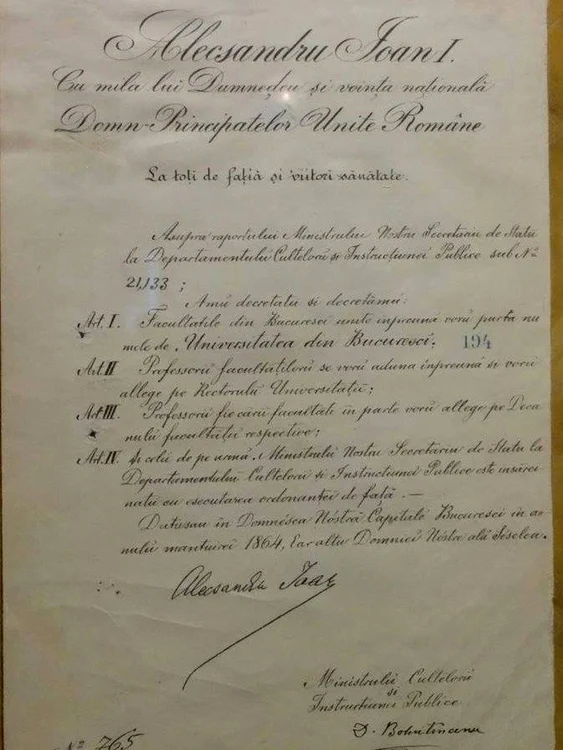 Alecsandru Ioan I.
Cu mila lui Dumnedeu și voința națională
Domn-Principatelor Unite Române
La toți de fația și viitori sănătate.
Asupra raportului Ministrului Nostru Secretariu de Statu
la Departamentului Cultelorŭ si Instrucțiunei Publice sub Nº
21,133 ;
Amŭ decretatu si decretămŭ:
Art. I. Facultatile din Bucuresci unite inpreună vorŭ purta nu
mele de „Universitatea din Bucuresci. 194
Art. II Professorii facultățilorŭ se vorŭ aduna inpreună si vorŭ
allege pe Rectorulŭ Universității;
Art. III. Professorii fiecării facultăți in parte vorŭ allege pe Deca
nulŭ facultății respective;
Art. IV. Și celŭ de pe urmă. Ministrulŭ Nostru Secretariu de Statu la
Departamentulŭ Cultelorŭ si Instrucțiunei Publice este insărci
natŭ cu esecutarea ordonanței de față. —
Datusau in Domnésca Nóstră Capitală Bucuresci in a-
nulŭ mantuirei 1864, Ear altu Domniei Nóstre alŭ Séselea.
Alecsandru Ioan
Ministrulŭ Cultelorŭ
si
Instrucțiunei Publice
D. Bolintineanu
Nº 765